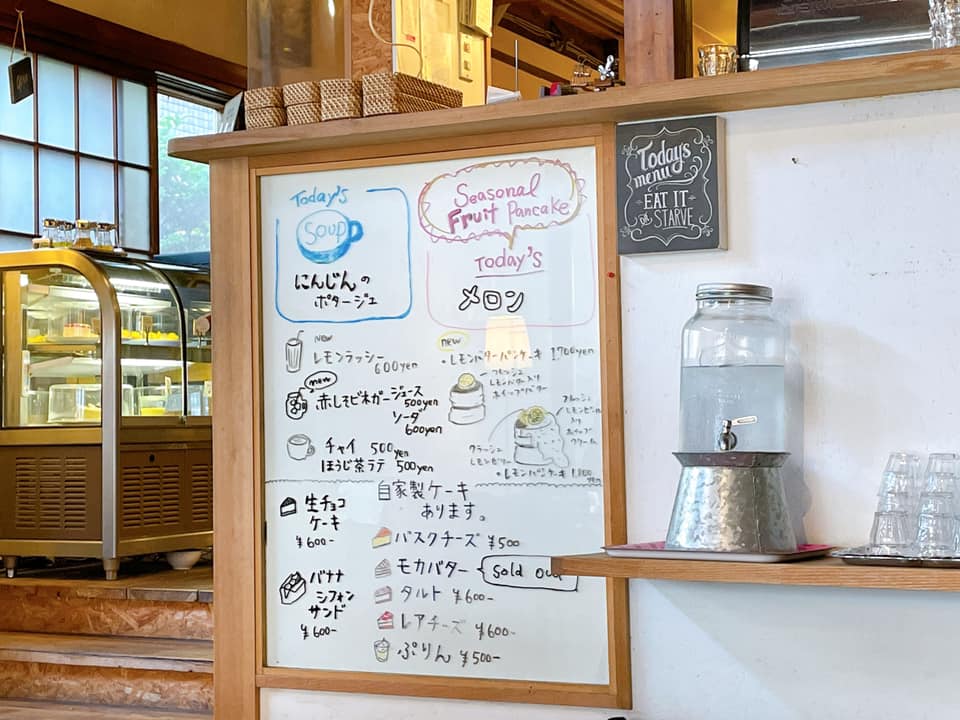 Today's
Soup
にんじんの
ポタージュ
Seasonal
Fruit Pancake
Today's
メロン
Today's
menu
EAT IT
OR
STARVE
NEW
レモンラッシー
600yen
new
赤しそビネガージュース
500yen
ソーダ
600yen
チャイ 500yen
ほうじ茶ラテ 500yen
new
・レモンバターパンケーキ 1.700yen
フレッシュ
レモンバター入り
ホイップバター
フレッシュ
レモンピール
入り
ホイップ
クリーム
クラッシュ
レモンゼリー
・レモンパンケーキ
yen
自家製ケーキ
あります。
生チョコ
ケーキ
¥600-
バナナ
シフォン
サンド
¥600-
バスクチーズ ¥500
モカバター
Sold
タルト ¥600-
レアチーズ ¥600-
ぷりん ¥500-